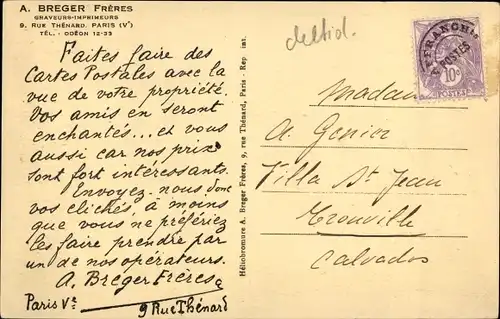 A. BREGER FRÈRES
GRAVEURS-IMPRIMEURS
9, RUE THÉNARD, PARIS (Vᵉ)
TÉL. - ODÉON 12-33
Faites faire des
Cartes Postales avec la
vue de votre propriété.
Vos amis en seront
enchantés... et vous
aussi car nos prix
sont fort intéressants.
Envoyez-nous donc
vos clichés, à moins
que vous ne préfériez
les faire prendre par
un de nos opérateurs.
A. Breger Frères
Paris Vᵉ 9 Rue Thénard
Héliobromure A. Breger Frères, 9, rue Thénard, Paris - Rep. int.
AFFRANCHts
POSTES
10c
Madame
A. Genier
Villa St Jean
Trouville
Calvados